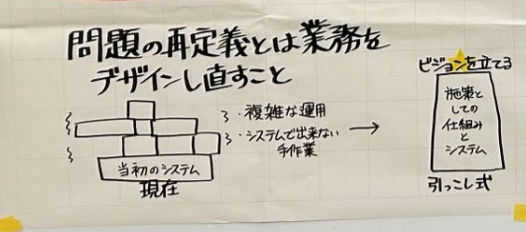 問題の再定義とは業務を
デザインし直すこと
当初のシステム
現在
・複雑な運用
・システムで出来ない
手作業
ビジョンを立てる
施策と
しての
仕組み
と
システム
引っこし式